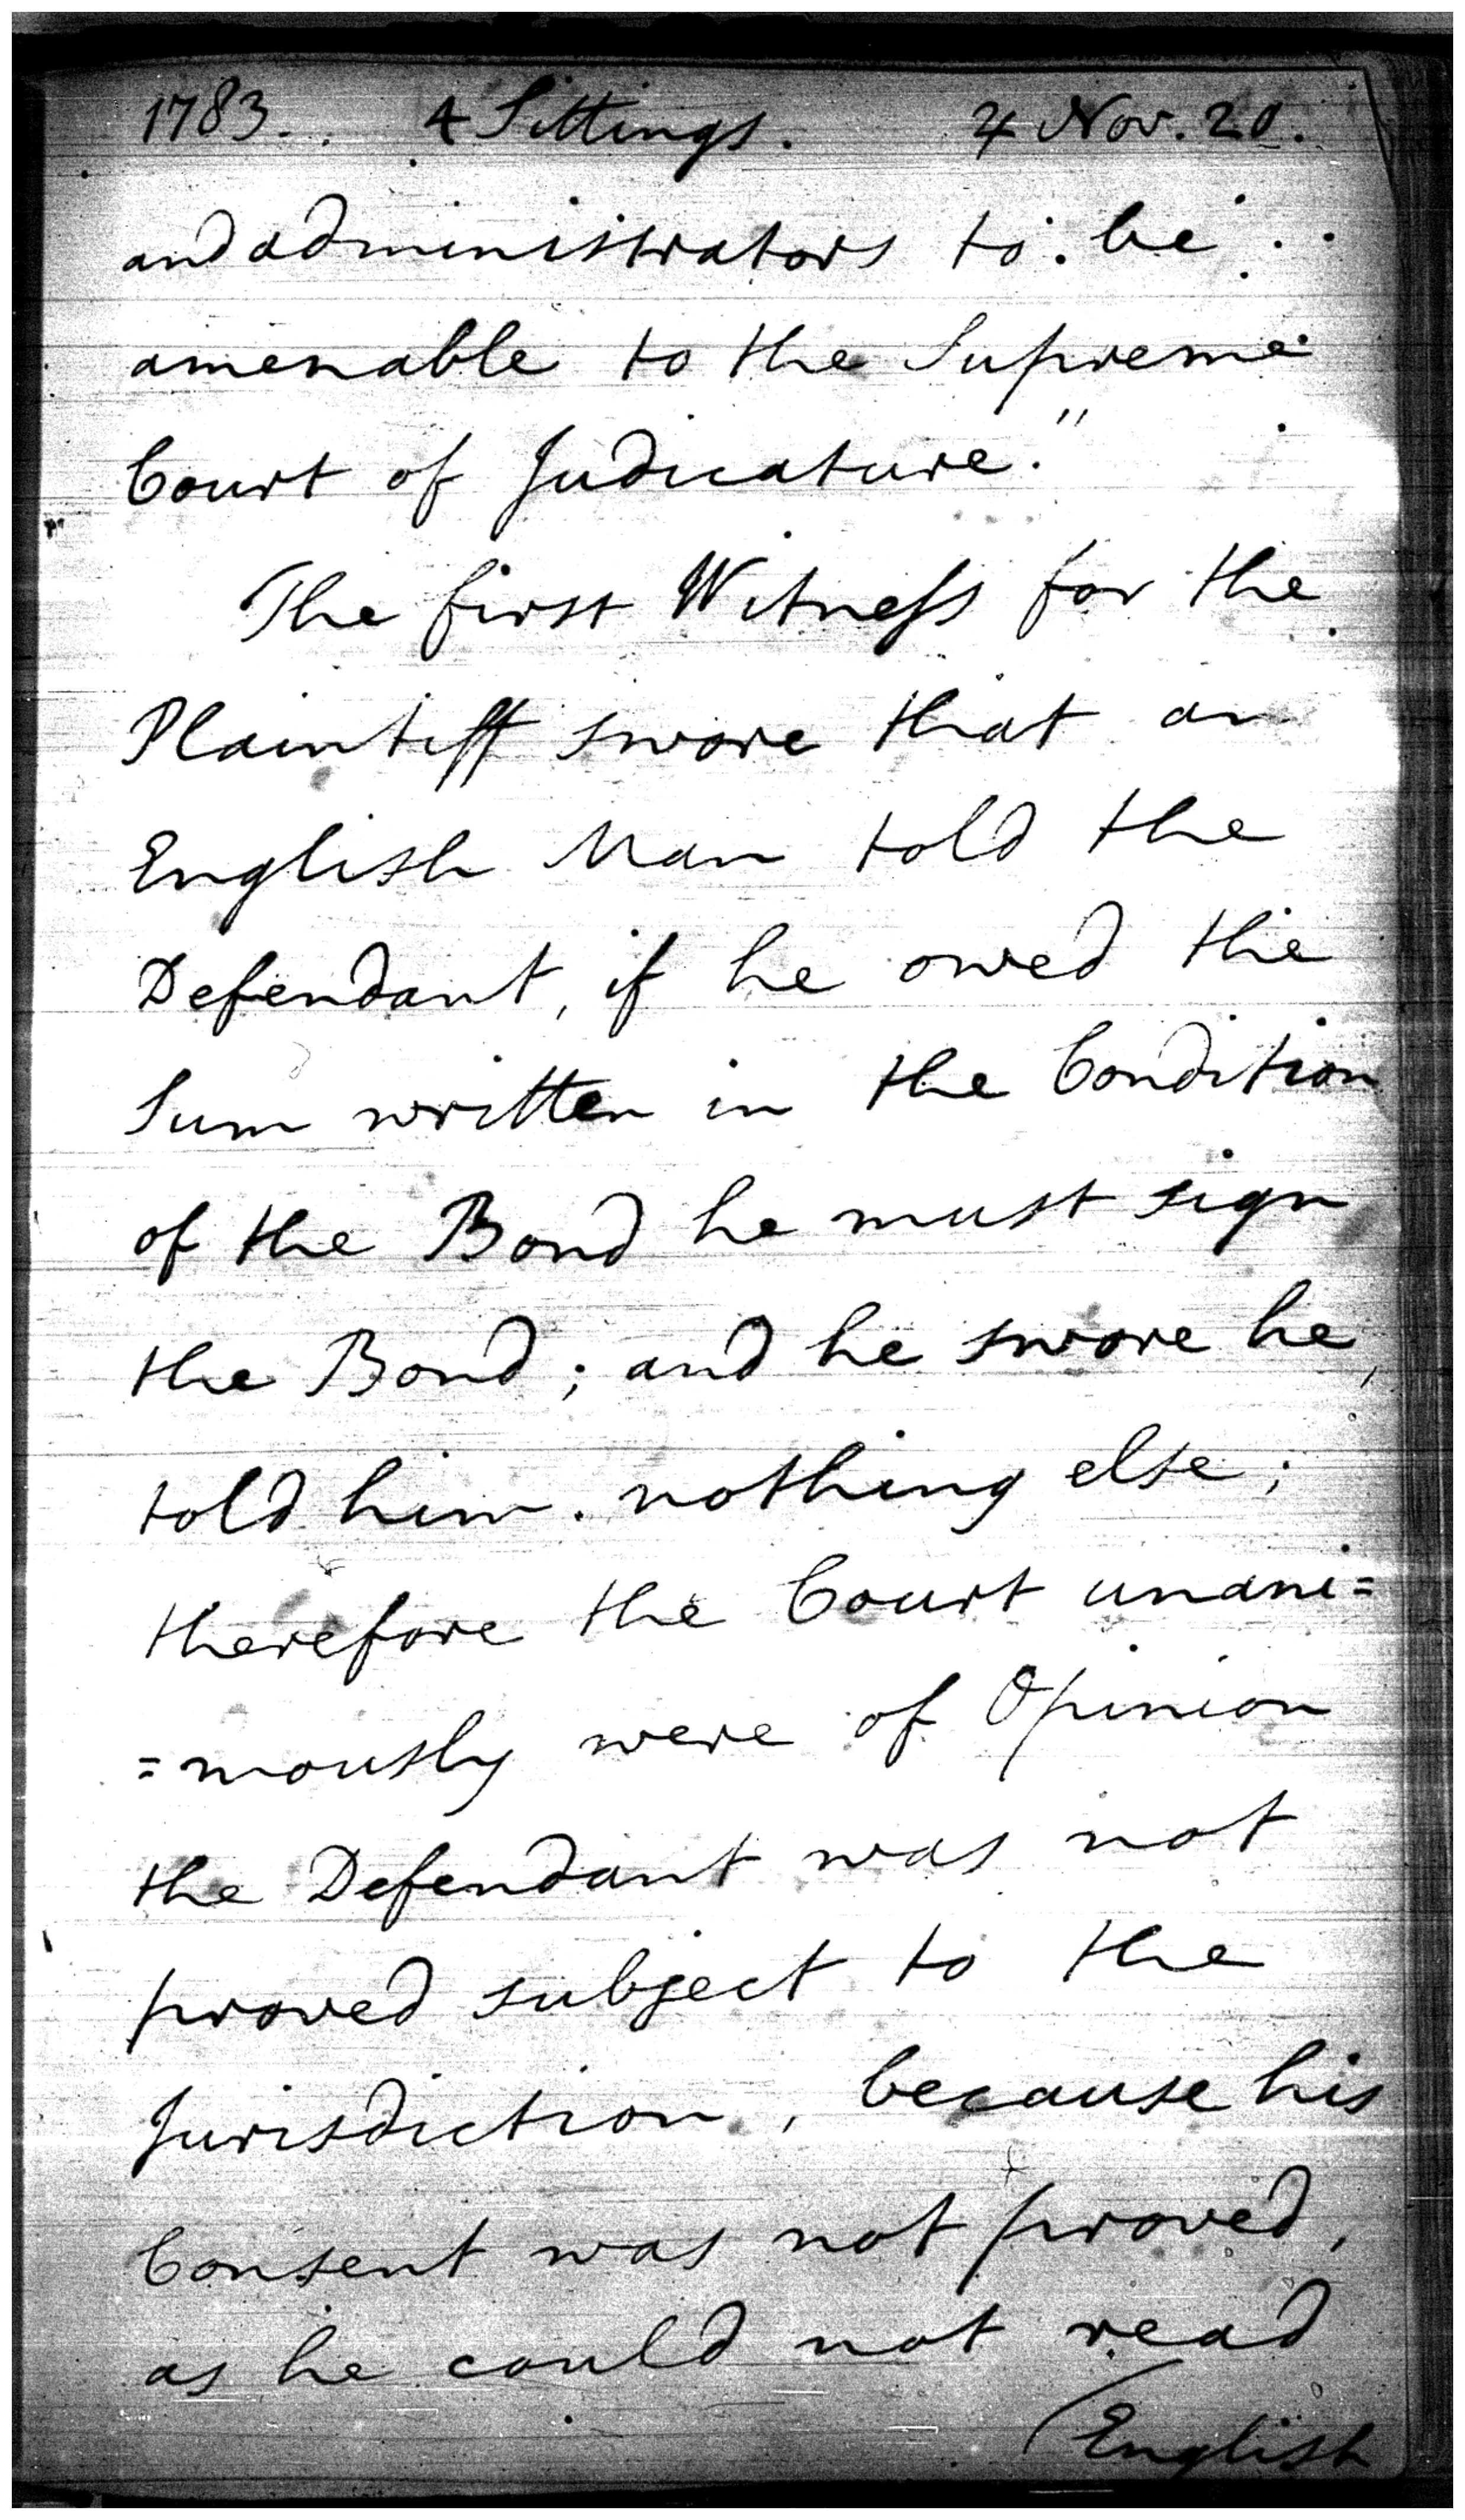 1783. 4 Sittings. ♃ Nov. 20.
and administrators to be
amenable to the Supreme
Court of Judicature."
The first Witness for the
Plaintiff swore that an
English Man told the
Defendant, if he owed the
Sum written in the Condition
of the Bond he must sign
the Bond; and he swore he
told him nothing else;
therefore the Court unani=
=mously were of Opinion
the Defendant was not
proved subject to the
Jurisdiction, because his
Consent was not proved,
as he could not read
(English